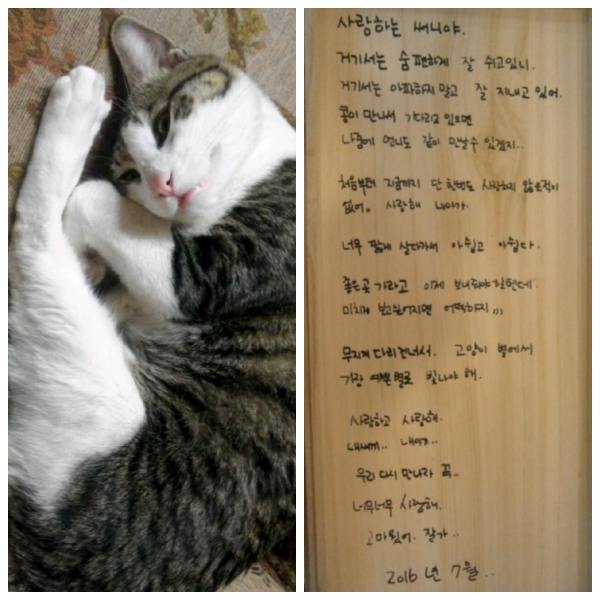 사랑하는 써니야.
거기서는 숨 편하게 잘 쉬고있니.
거기서는 아파하지 말고 잘 지내고 있어.
콩이 만나서 기다리고 있으면
나중에 언니도 같이 만날수 있겠지..
처음부터 지금까지 단 한번도 사랑하지 않은적이
없어. 사랑해 내아가.
너무 짧게 살다가서 아쉽고 아쉽다.
좋은곳 가라고 이제 보내줘야 할텐데.
미치게 보고싶어지면 어떡하지,,,
무지개 다리건너서. 고양이 별에서
가장 예쁜별로 빛나야 해.
사랑하고 사랑해.
내새끼.. 내아가..
우리 다시 만나자 꼭..
너무너무 사랑해.
고마웠어. 잘가..
2016 년 7월..